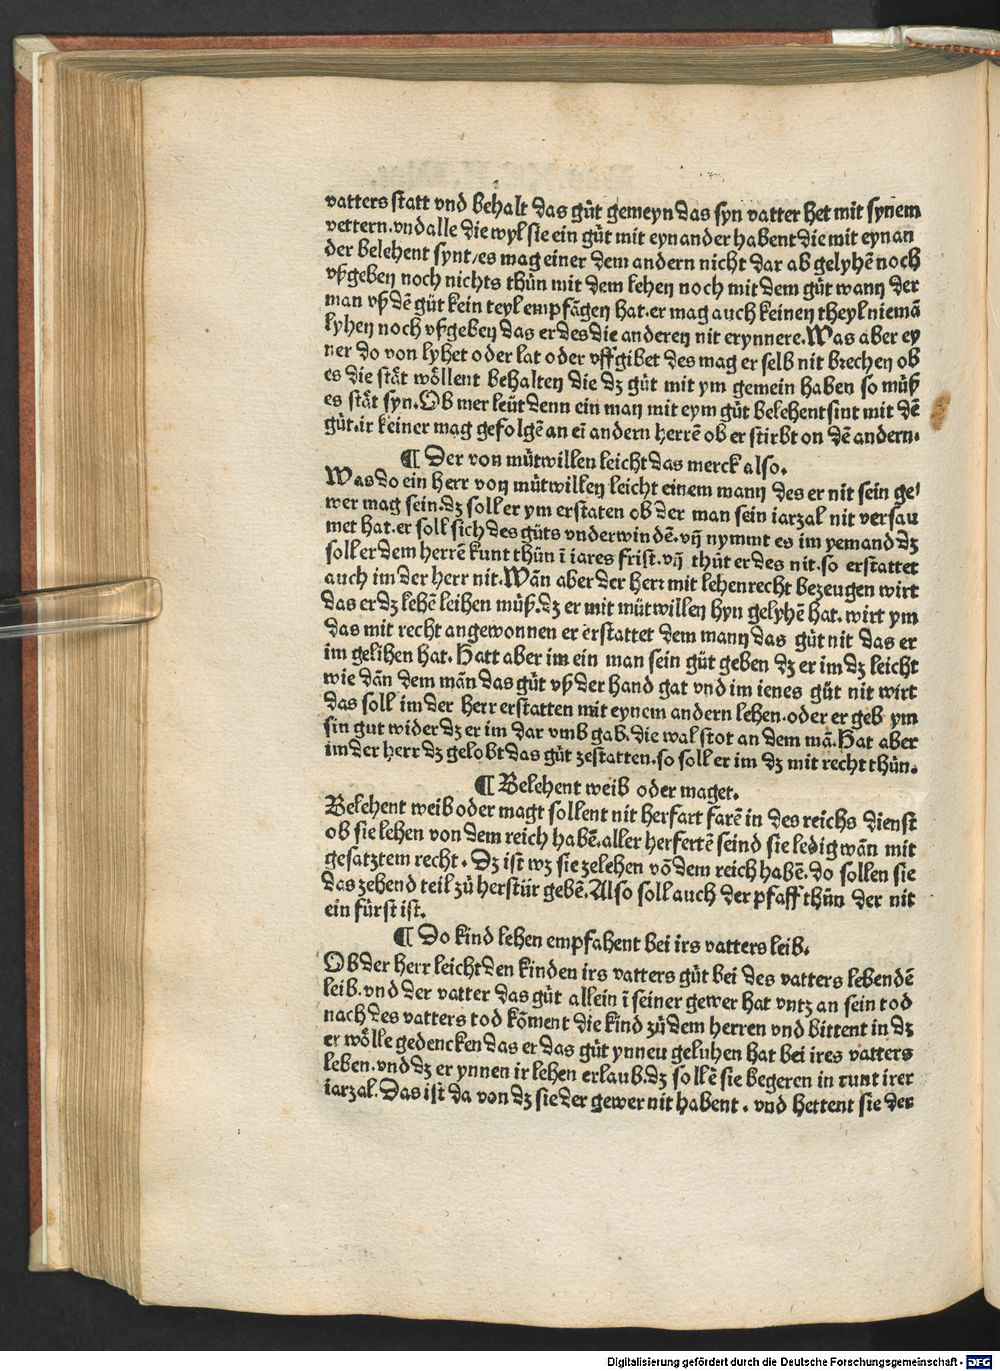 vatters statt vnd behalt das gůt gemeyn das syn vatter het mit synem
vettern. vnd alle die wyl sie ein gůt mit eynander habent die mit eynan
der belehent synt/es mag einer dem andern nicht dar ab gelyhē noch
vßgeben noch nichts thůn mit dem lehen noch mit dem gůt wann der
man vß dē gůt kein teyl empfāgen hat. er mag auch keinen theyl niemā
lyhen noch vßgeben das er des die anderen nit erynnere. Was aber ey
ner do von lyhet oder lat oder vffgibet des mag er selb nit brechen ob
es die stāt wöllent behalten die dz gůt mit ym gemein haben so můß
es stāt syn. Ob mer leüt denn ein man mit eym gůt belehent sint mit dē
gůt. ir keiner mag gefolgē an eī andern herrē ob er stirbt on dē andern.
¶ Der von můtwillen leicht das merck also.
Was do ein herr von můtwillen leicht einem mann des er nit sein ge⸗
wer mag sein. dz soll er ym erstaten ob der man sein iarzal nit versau
met hat. er soll sich des gůts vnderwindē. vn̄ nymmt es im yemand dz
soll er dem herrē kunt thůn ī iares frist. vn̄ thůt er des nit. so erstattet
auch im der herr nit. Wān aber der herr mit lehenrecht bezeugen wirt
das er dz lehē leihen můß. dz er mit můtwillen hyn gelyhē hat. wirt ym
das mit recht angewonnen er erstattet dem mann das gůt nit das er
im gelihen hat. Hatt aber im ein man sein gůt geben dz er im dz leicht
wie dān dem mān das gůt vß der hand gat vnd im ienes gůt nit wirt
das soll im der herr erstatten mit eynem andern lehen. oder er geb ym
sin gut wider dz er im dar vmb gab. die wal stot an dem mā. Hat aber
im der herr dz gelobt das gůt zestatten. so soll er im dz mit recht thůn.
¶ Belehent weib oder maget.
Belehent weib oder magt sollent nit herfart farē in des reichs dienst
ob sie lehen von dem reich habē. aller herfertē seind sie ledig wān mit
gesatztem recht. Dz ist wz sie zelehen vō dem reich habē. do sollen sie
das zehend teil zů herstür gebē. Also soll auch der pfaff thůn der nit
ein fürst ist.
¶ Do kind lehen empfahent bei irs vatters leib.
Ob der herr leicht den kinden irs vatters gůt bei des vatters lebendē
leib. vnd der vatter das gůt allein ī seiner gewer hat vntz an sein tod
nach des vatters tod kōment die kind zů dem herren vnd bittent in dz
er wölle gedencken das er das gůt ynneu geluhen hat bei ires vatters
leben. vnd dz er ynnen ir lehen erlaub. dz sollē sie begeren in runt irer
iarzal. Das ist da von dz sie der gewer nit habent. vnd hettent sie der
Digitalisierung gefördert durch die Deutsche Forschungsgemeinschaft - DFG